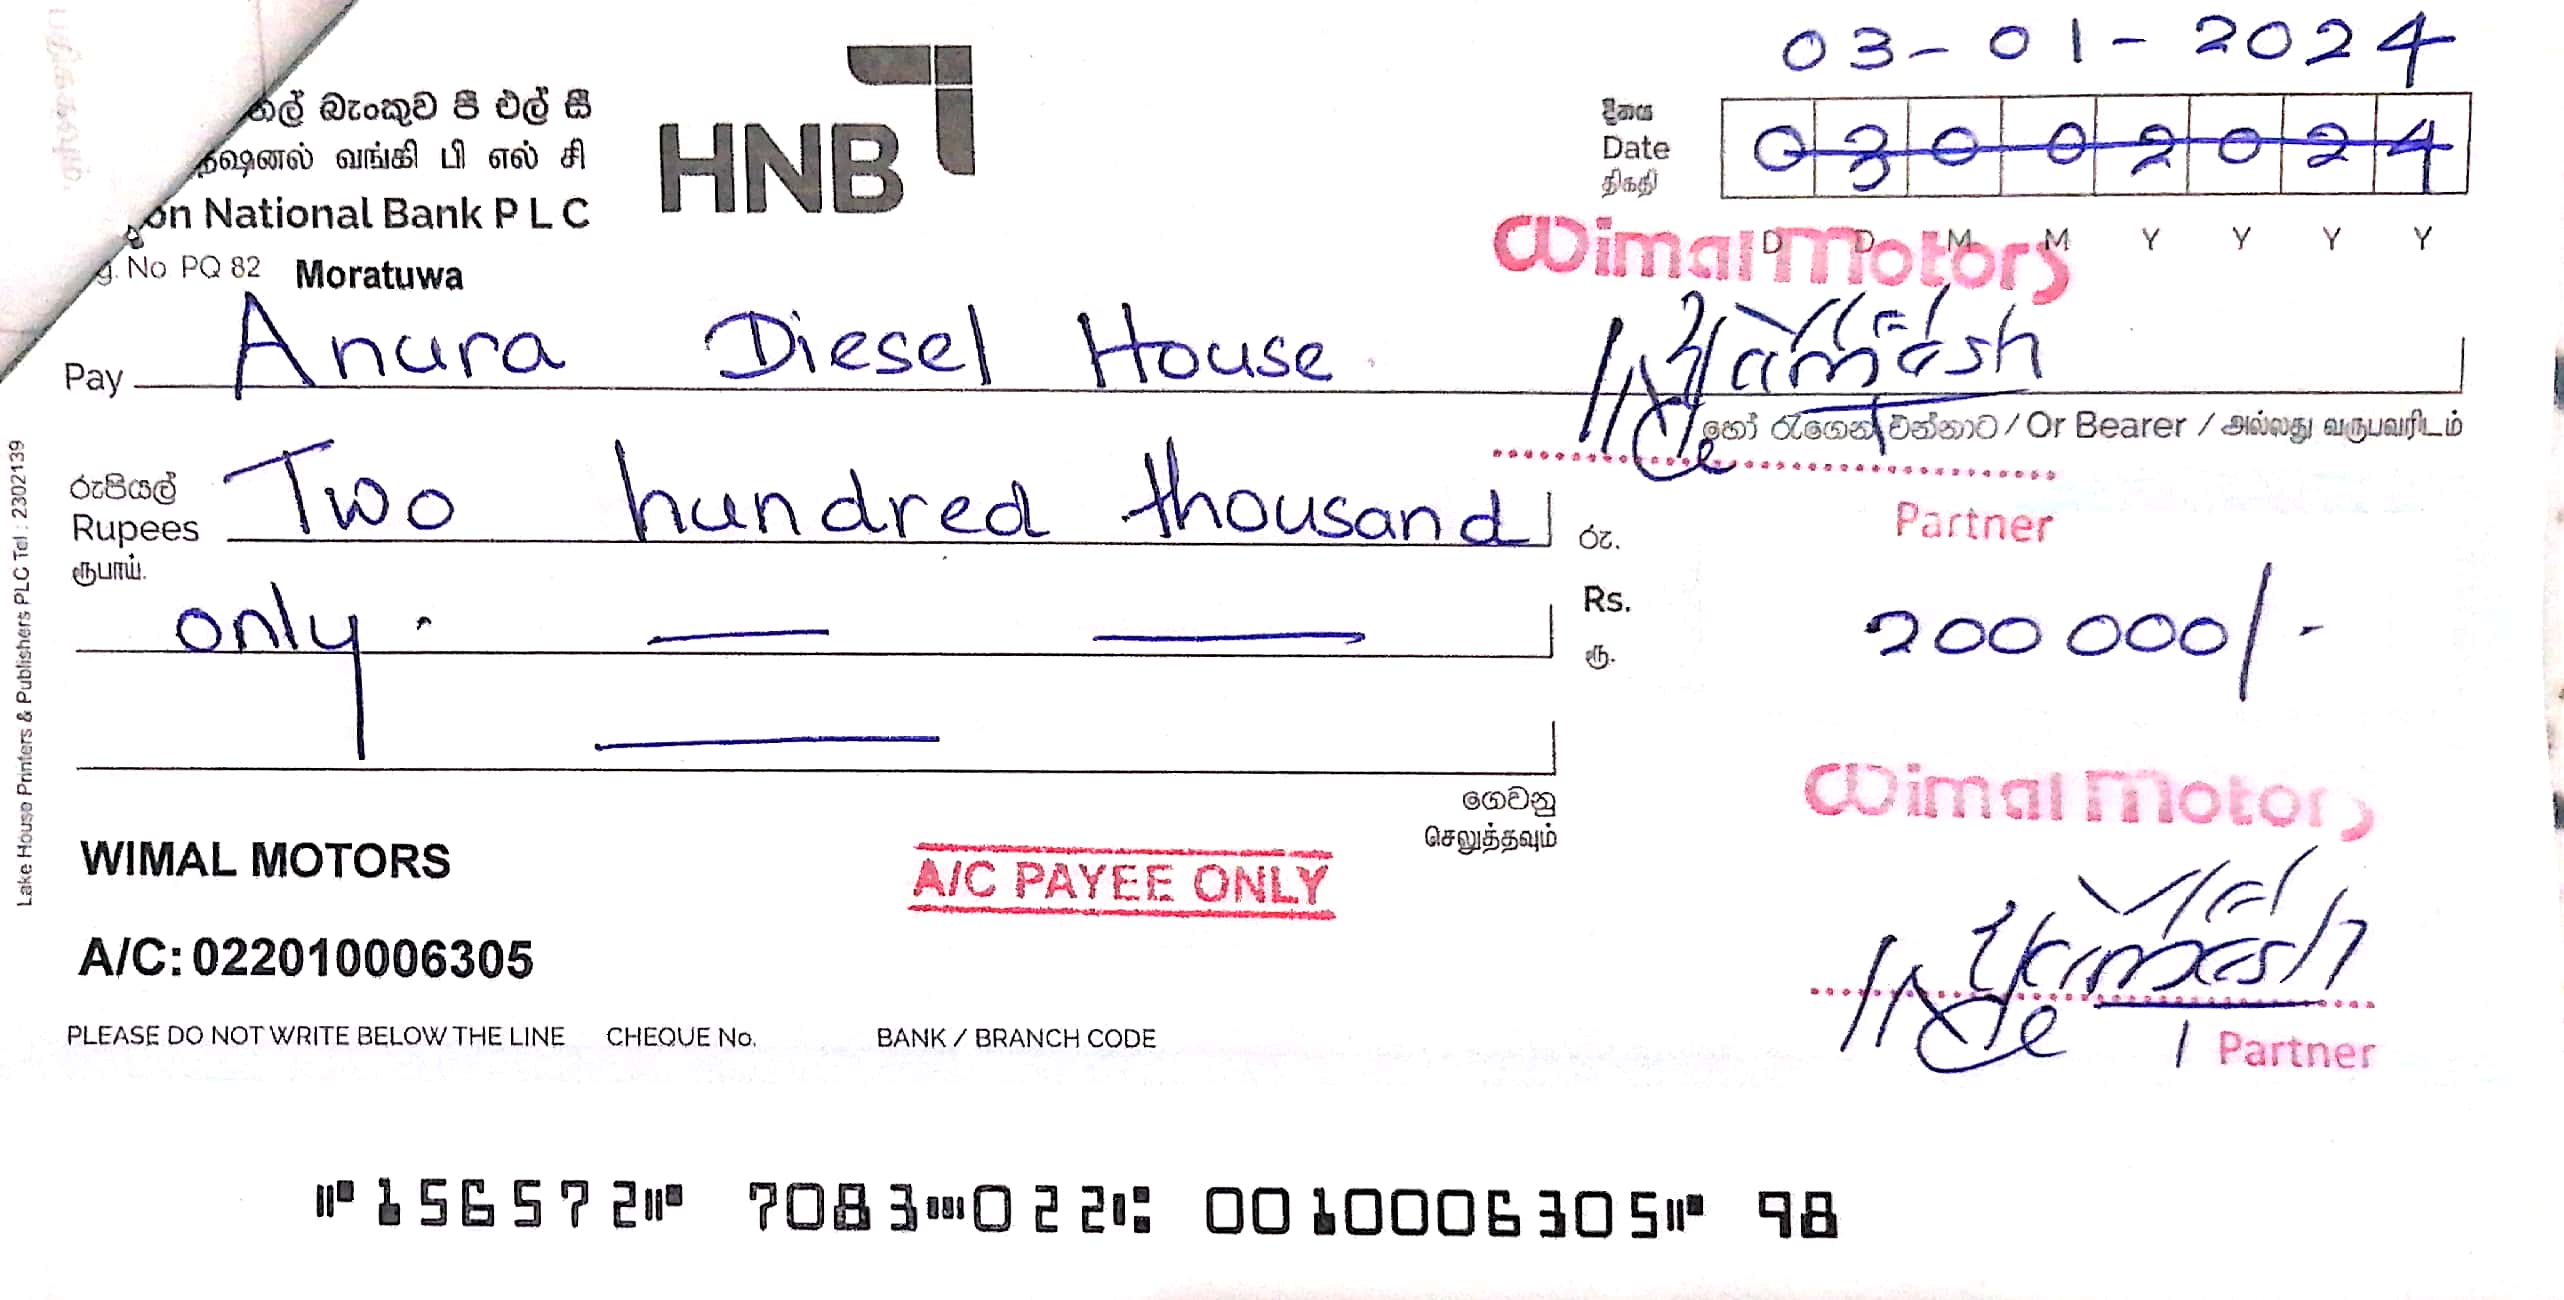 03-01-2024
නල් බැංකුව පී එල් සී
நஷனல் வங்கி பி எல் சி
on National Bank P L C
g. No PQ 82 Moratuwa
HNB
දිනය
Date 03002024
திகதி
D D M M Y Y Y Y
Wimal Motors
Pay Anura Diesel House
හෝ රැගෙන එන්නාට / Or Bearer / அல்லது வருபவரிடம்
Partner
රුපියල්
Rupees Two hundred thousand
ரூபாய்.
only.
රු.
Rs. 200 000/-
ரூ.
ගෙවනු
செலுத்தவும்
Wimal Motors
WIMAL MOTORS
A/C PAYEE ONLY
A/C: 022010006305
Partner
PLEASE DO NOT WRITE BELOW THE LINE CHEQUE No. BANK / BRANCH CODE
⑈156572⑈ 7083⑉022⑆ 0010006305⑈ 98
Lake House Printers & Publishers PLC Tel : 2302139